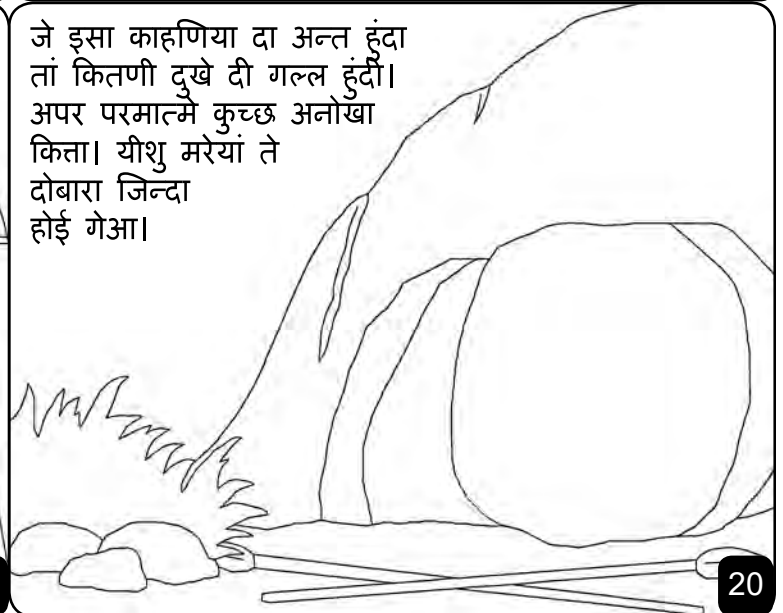 जे इसा काहणिया दा अन्त हुंदा
तां कितणी दुखे दी गल्ल हुंदी।
अपर परमात्मे कुच्छ अनोखा
कित्ता। यीशु मरेयां ते
दोबारा जिन्दा
होई गेआ।
20